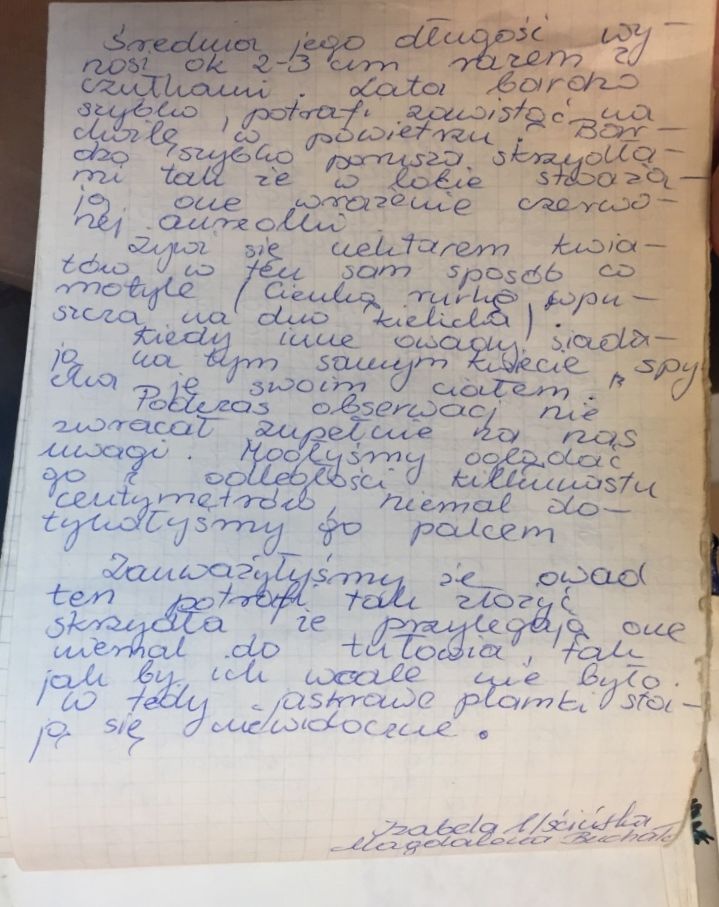 Średnia jego długość wy-
nosi ok 2-3 cm razem z
czułkami. Lata bardzo
szybko, potrafi zawistać na
chwilę w powietrzu. Bar-
dzo szybko porusza skrzydła-
mi tak że w locie stwarza-
ją one wrażenie czerwo-
nej aureolki
Żywi się nektarem kwia-
tów w ten sam sposób co
motyle (cienką rurkę wpu-
szcza na dno kielicha).
Kiedy inne owady siada-
ją na tym samym kwiecie, spy
cha je swoim ciałem.
Podczas obserwacj nie
zwracał zupełnie na nas
uwagi. Mogłyśmy oglądać
go z odległości kilkunastu
centymetrów, niemal do-
tykałyśmy go palcem
Zauważyłyśmy że owad
ten potrafi tak złożyć
skrzydła że przylegają one
niemal do tułowia, tak
jak by ich wcale nie było.
W tedy jaskrawe plamki sta-
ją się niewidoczne.
Izabela
Magdalena